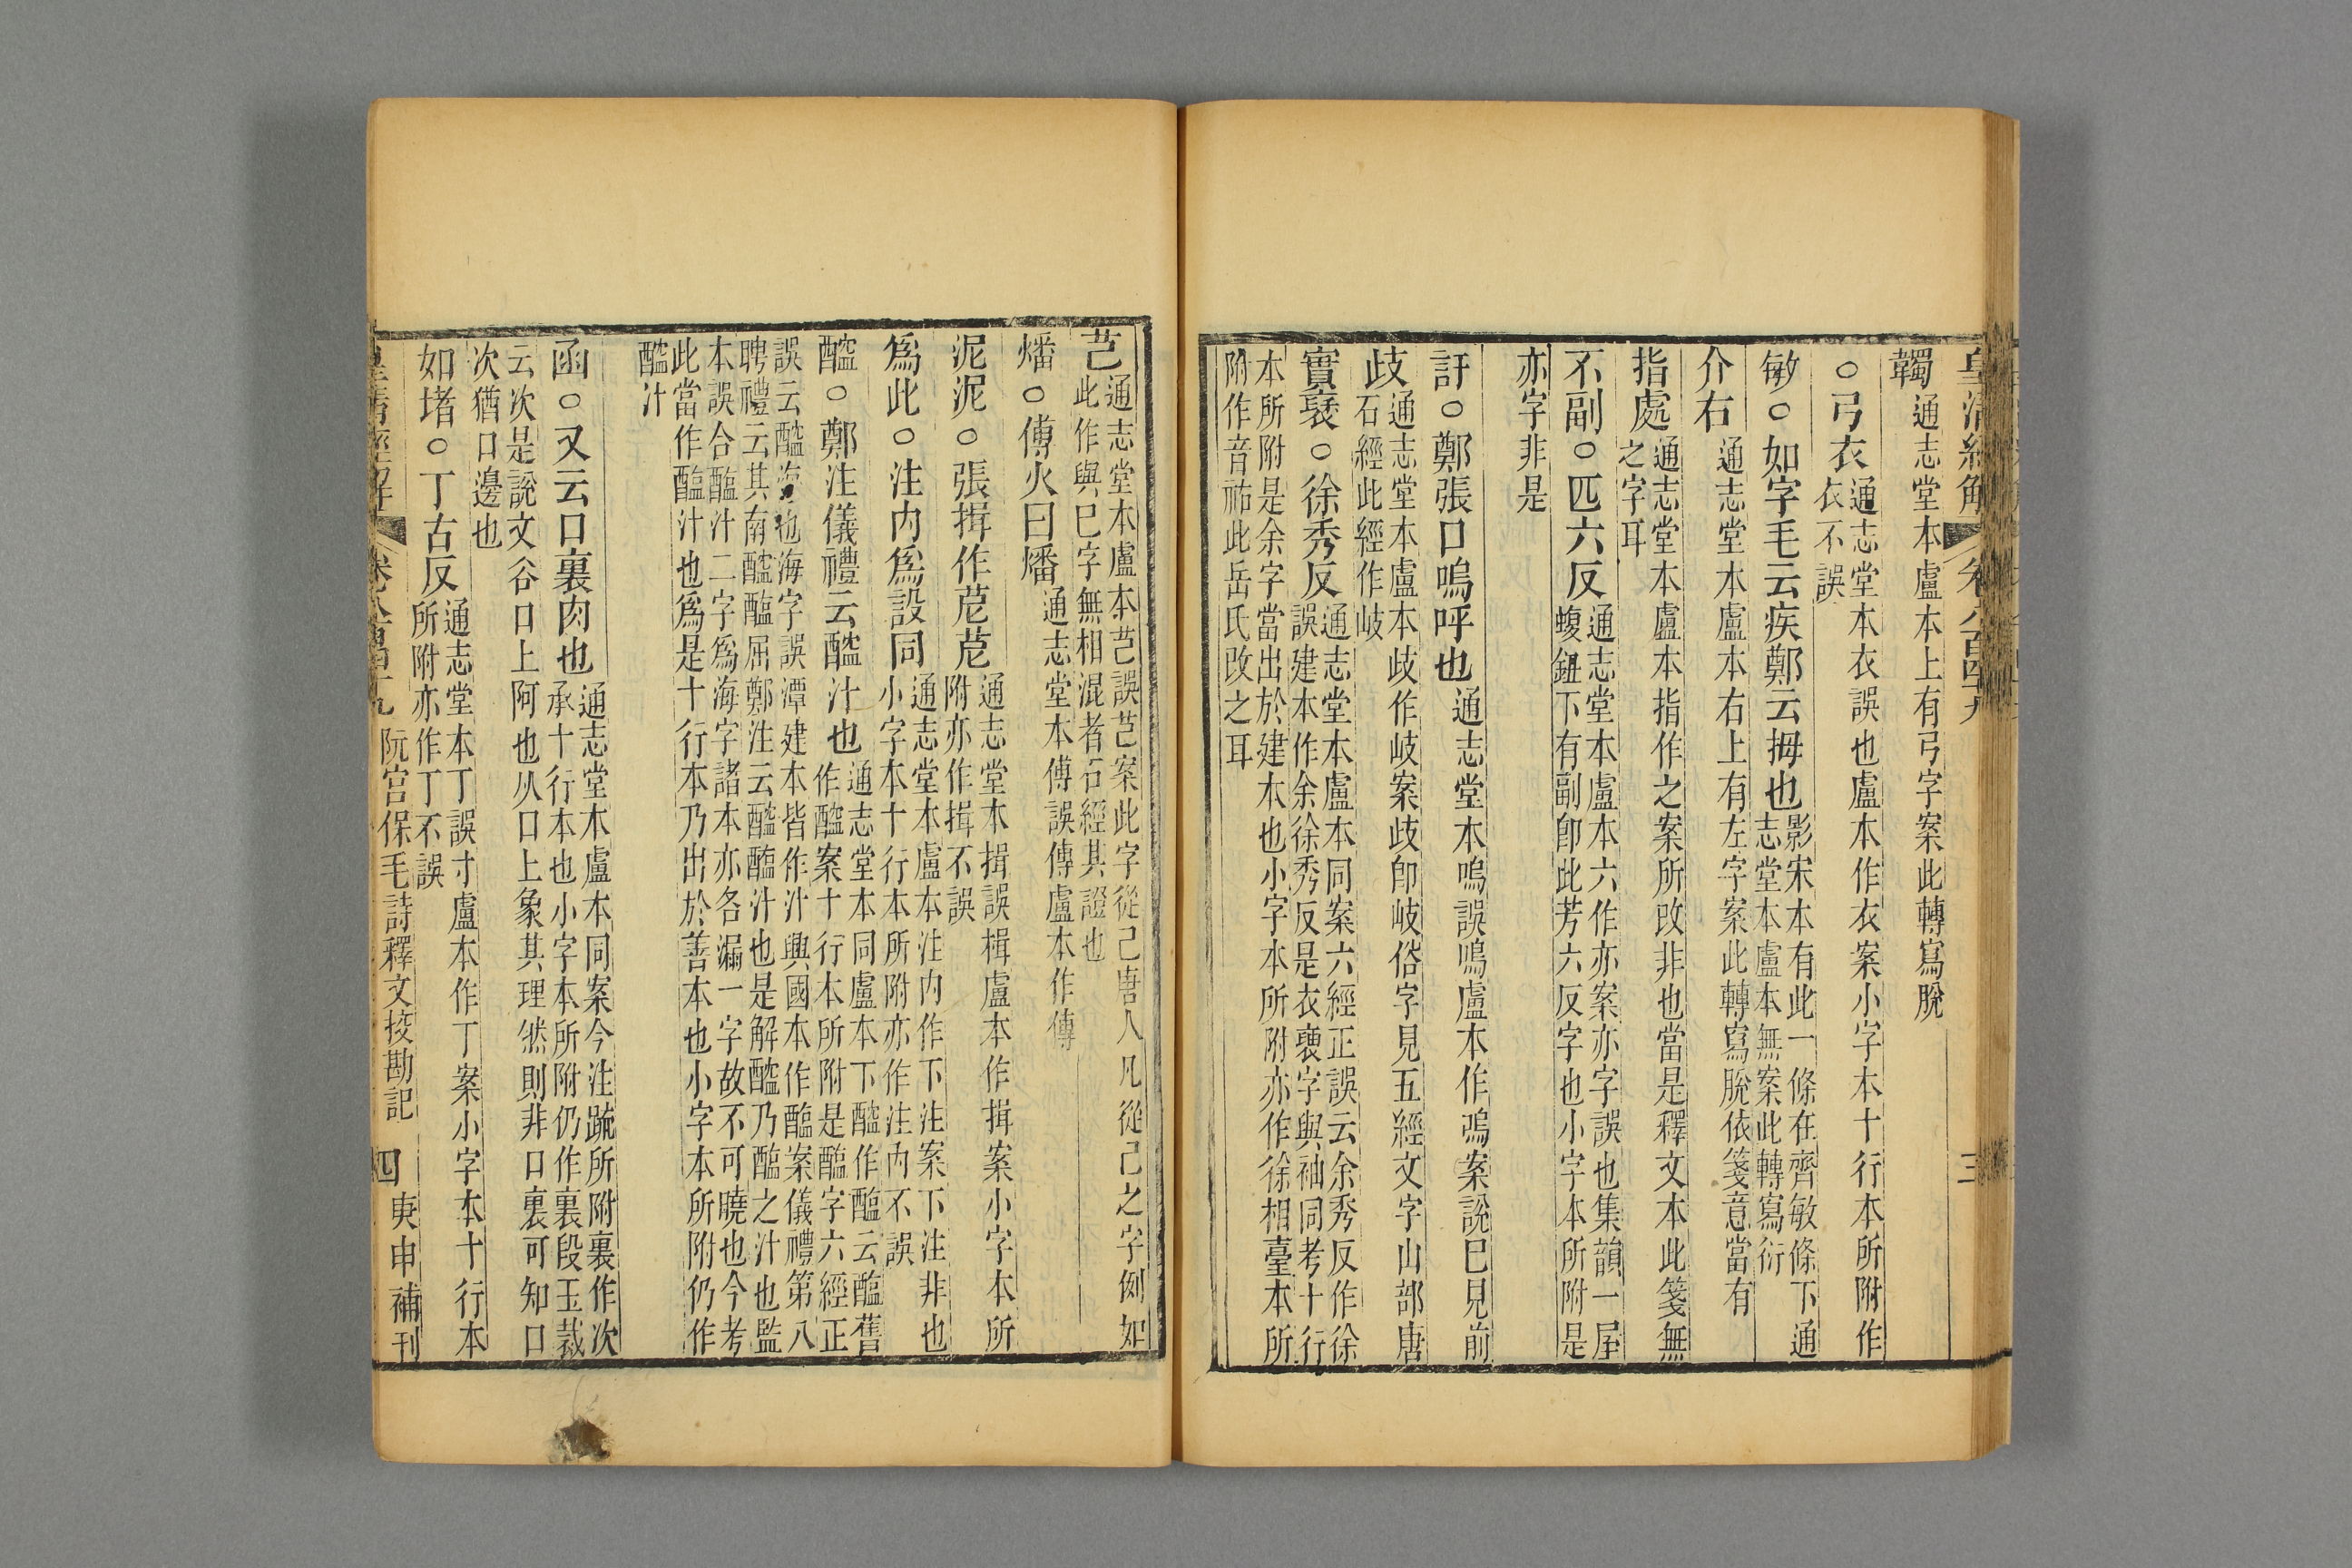 皇清經解 卷八百四十九 三
韣通志堂本盧本上有弓字案此轉寫脫
○弓衣通志堂本衣誤也盧本作衣案小字本十行本所附作
衣不誤
敏○如字毛云疾鄭云拇也影宋本有此一條在齊敏條下通
志堂本盧本無案此轉寫衍
介右通志堂本盧本右上有左字案此轉寫脫依箋意當有
指處通志堂本盧本指作之案所改非也當是釋文本此箋無
之字耳
不副○匹六反通志堂本盧本六作亦案亦字誤也集韻一屋
蝮鈕下有副卽此芳六反字也小字本所附是
亦字非是
訏○鄭張口嗚呼也通志堂本嗚誤鳴盧本作嗚案說巳見前
歧通志堂本盧本歧作岐案歧卽岐俗字見五經文字山部唐
石經此經作岐
實褎○徐秀反通志堂本盧本同案六經正誤云余秀反作徐
誤建本作余徐秀反是衣褏字與袖同考十行
本所附是余字當出於建本也小字本所附亦作徐相臺本所
附作音祐此岳氏改之耳
芑通志堂本盧本芑誤芑案此字從己唐人凡從己之字例如
此作與巳字無相混者石經其證也
燔○傅火曰燔通志堂本傅誤傳盧本作傅
泥泥○張揖作苨苨通志堂本揖誤楫盧本作揖案小字本所
附亦作揖不誤
爲此○注內爲設同通志堂本盧本注內作下注案下注非也
小字本十行本所附亦作注內不誤
醓○鄭注儀禮云醓汁也通志堂本同盧本下醓作䤈云䤈舊
作醓案十行本所附是䤈字六經正
誤云醓海也海字誤潭建本皆作汁興國本作䤈案儀禮第八
聘禮云其南醓䤈屈鄭注云醓䤈汁也是解醓乃䤈之汁也監
本誤合䤈汁二字爲海字諸本亦各漏一字故不可曉也今考
此當作䤈汁也爲是十行本乃出於善本也小字本所附仍作
醓汁
函○又云口裏肉也通志堂本盧本同案今注疏所附裏作次
承十行本也小字本所附仍作裏段玉裁
云次是說文谷口上阿也从口上象其理然則非口裏可知口
次猶口邊也
如堵○丁古反通志堂本丁誤寸盧本作丁案小字本十行本
所附亦作丁不誤
皇清經解 卷八百四十九 阮宮保毛詩釋文挍勘記 四 庚申補刊